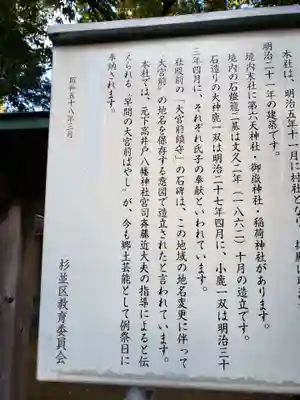 本社は、明治五年十一月に村社とな
明治二十一年の建築です。
境内末社に第六天神社・御嶽神社・稲荷神社があります。
境内の石燈籠二基は文久二年(一八六二)十月の造立です。
石造りの大神鹿一双は明治二十七年四月に、小鹿一双は明治三十
三年四月に、それぞれ氏子の奉献といわれています。
社殿前の「大宮前鎮守」の石碑は、この地域の地名変更に伴って
"大宮前"の地名を保存する意図で造立されたと言われています。
本社では、元下高井戸八幡神社宮司斉藤近大夫の指導によると伝
えられる「早間の大宮前ばやし」が、今も郷土芸能として例祭日に
奉納されます。
昭和五十八年三月
杉並区教育委員会